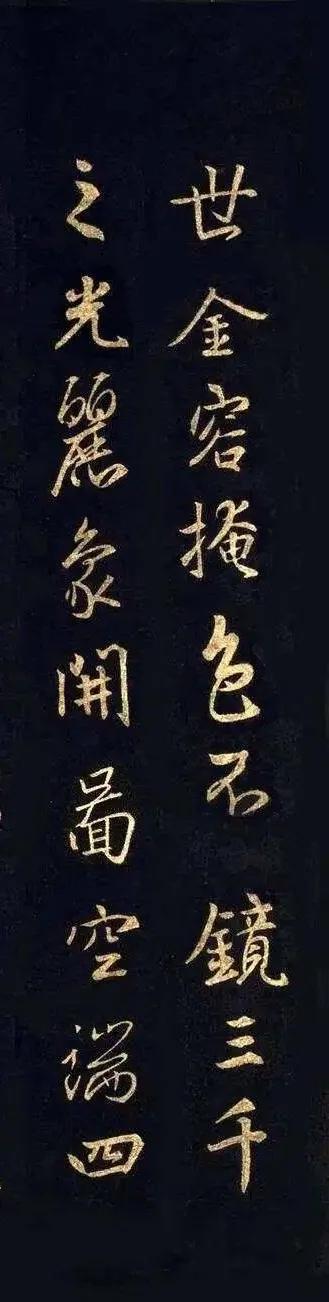 世金容掩色不鏡三千
之光麗象開啚空端四